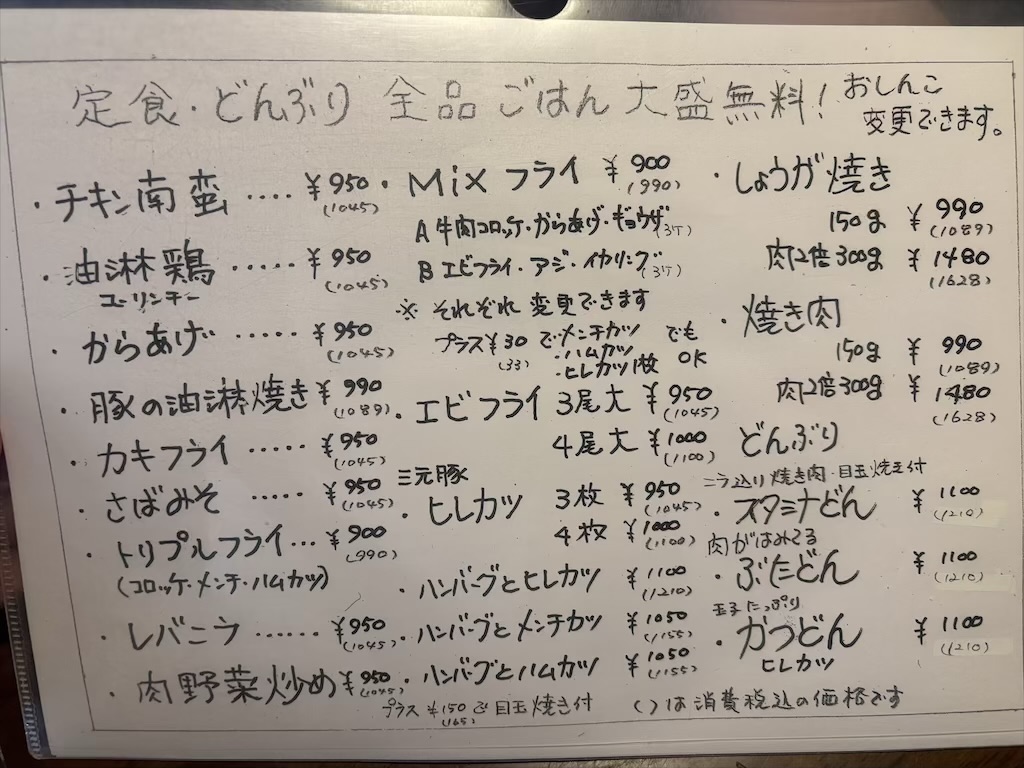 定食・どんぶり 全品 ごはん 大盛 無料！
おしんこ
変更できます。
・チキン南蛮 ‥‥ ¥950
(1045)
・油淋鶏 ‥‥‥ ¥950
ユーリンチー (1045)
・からあげ ‥‥‥ ¥950
(1045)
・豚の油淋焼き ¥990
(1089)
・カキフライ ‥‥‥ ¥950
(1045)
・さばみそ ‥‥‥ ¥950
(1045)
・トリプルフライ… ¥900
(990)
(コロッケ・メンチ・ハムカツ)
・レバニラ ‥‥‥ ¥950
(1045)
・肉野菜炒め ¥950
(1045)
・Mixフライ ¥900
(990)
A 牛肉コロッケ・からあげ・ギョウザ(3ケ)
B エビフライ・アジ・イカリング(3ケ)
※ それぞれ 変更できます
プラス¥30で・メンチカツ でも
(33) ・ハムカツ OK
・ヒレカツ1枚
・エビフライ 3尾大 ¥950
(1045)
4尾大 ¥1000
(1100)
三元豚
・ヒレカツ 3枚 ¥950
(1045)
4枚 ¥1000
(1100)
・ハンバーグとヒレカツ ¥1100
(1210)
・ハンバーグとメンチカツ ¥1050
(1155)
・ハンバーグとハムカツ ¥1050
(1155)
プラス ¥150で目玉焼き付
(165)
・しょうが焼き
150g ¥990
(1089)
肉2倍300g ¥1480
(1628)
・焼き肉
150g ¥990
(1089)
肉2倍300g ¥1480
(1628)
どんぶり
ニラ込り焼き肉・目玉焼き付
・スタミナどん ¥1100
(1210)
肉がはみでる
・ぶたどん ¥1100
(1210)
玉子たっぷり
・かつどん ¥1100
ヒレカツ (1210)
( )は消費税込の価格です